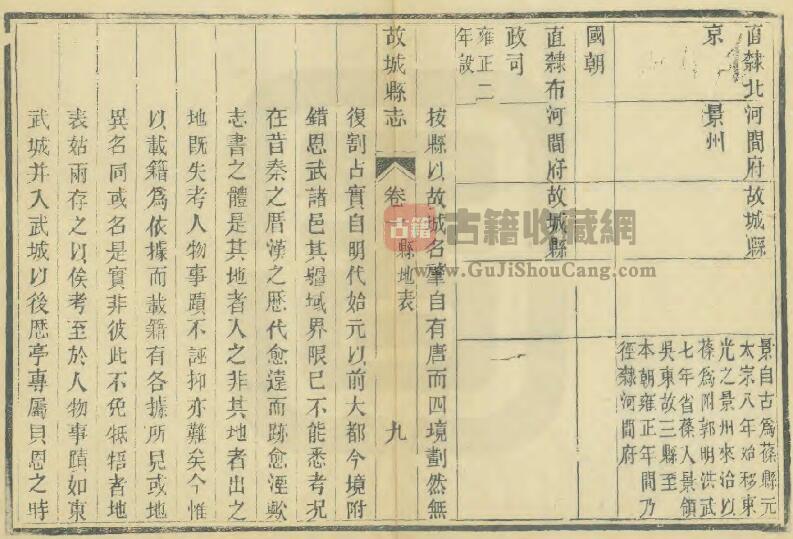 直隸北河間府故城縣
京　景州
景自古爲蓨縣元
太宗八年始移東
光之景州來治以
蓨爲附郭明洪武
七年省蓨入景領
吳東故三縣至
本朝雍正年間乃
徑隸河間府
國朝
直隸布河間府故城縣
政司
雍正二
年設
按縣以故城名肇自有唐而四境劃然無
復割占實自明代始元以前大都今境附
故城縣志
卷
縣地表
九
錯恩武諸邑其疆域界限已不能悉考况
在昔秦之厝漢之歷代愈遠而跡愈湮歟
志書之體是其地者人之非其地者出之
地既失考人物事蹟不誣抑亦難矣今惟
以載籍爲依據而載籍有各據所見或地
異名同或名是實非彼此不免牴牾者地
表姑兩存之以俟考至於人物事蹟如東
武城并入武城以後歷亭專屬貝恩之時
古籍
古籍收藏網
www.GuJiShouCang.com